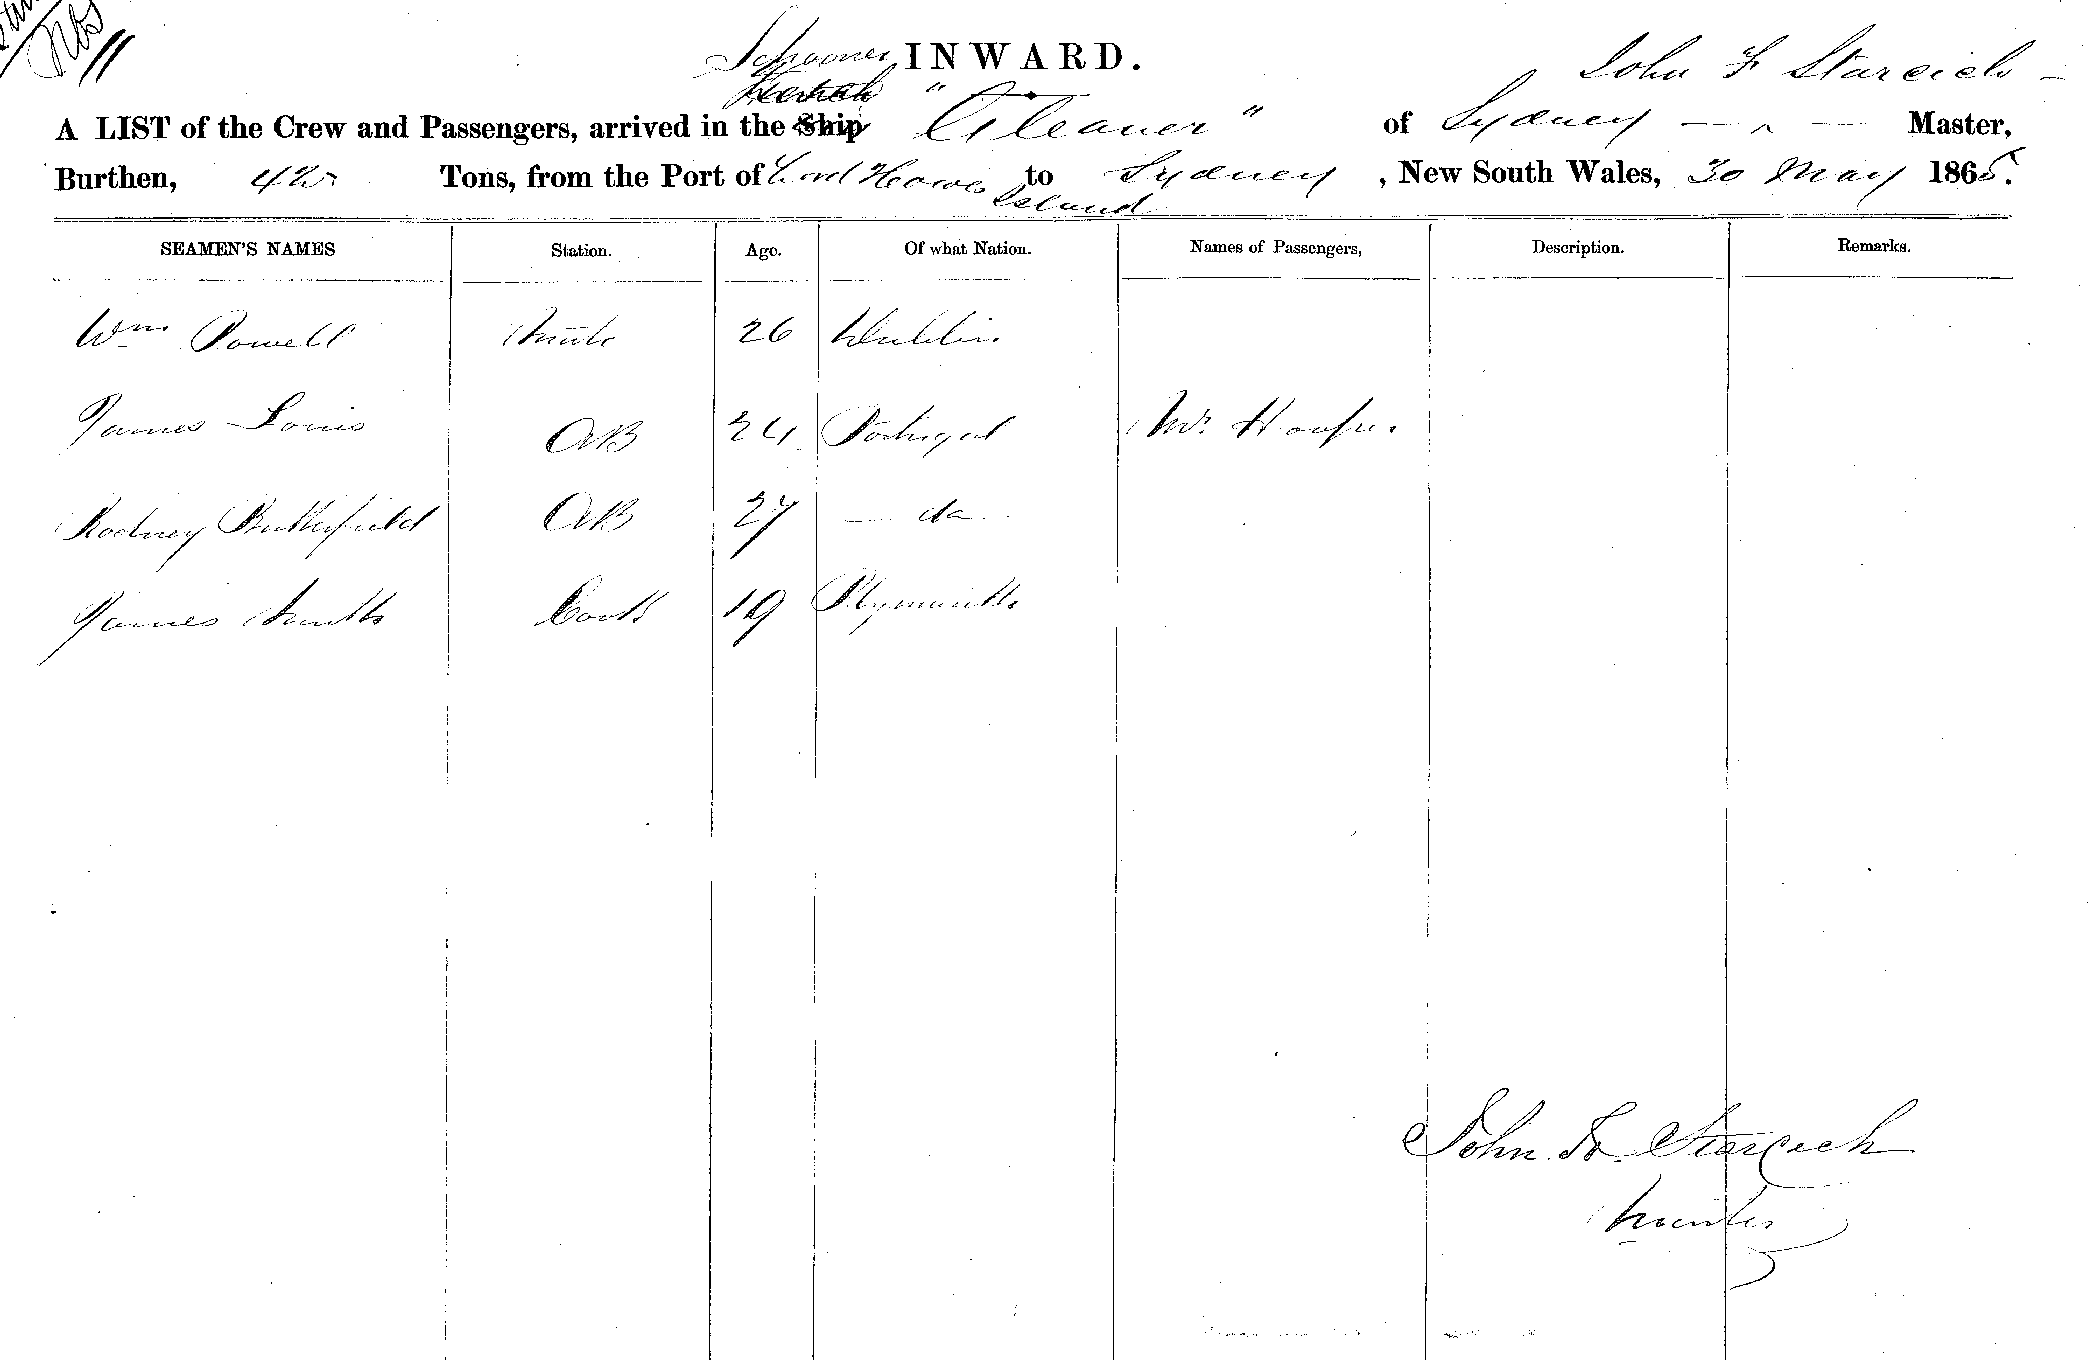 11
Schooner INWARD. John F Starcich
A LIST of the Crew and Passengers, arrived in the Ship "Gleaner" of Sydney Master,
Burthen, 42 Tons, from the Port of Lord Howe Island to Sydney, New South Wales, 30 May 1865.
SEAMEN'S NAMES Station. Age. Of what Nation. Names of Passengers, Description. Remarks.
Wm Powell Mate 26 Dublin
James Louis AB 24 Portugal Mr
Rodney Butterfield AB 27 — do —
James Smith Cook 19 Plymouth
John F. Starcich
Master